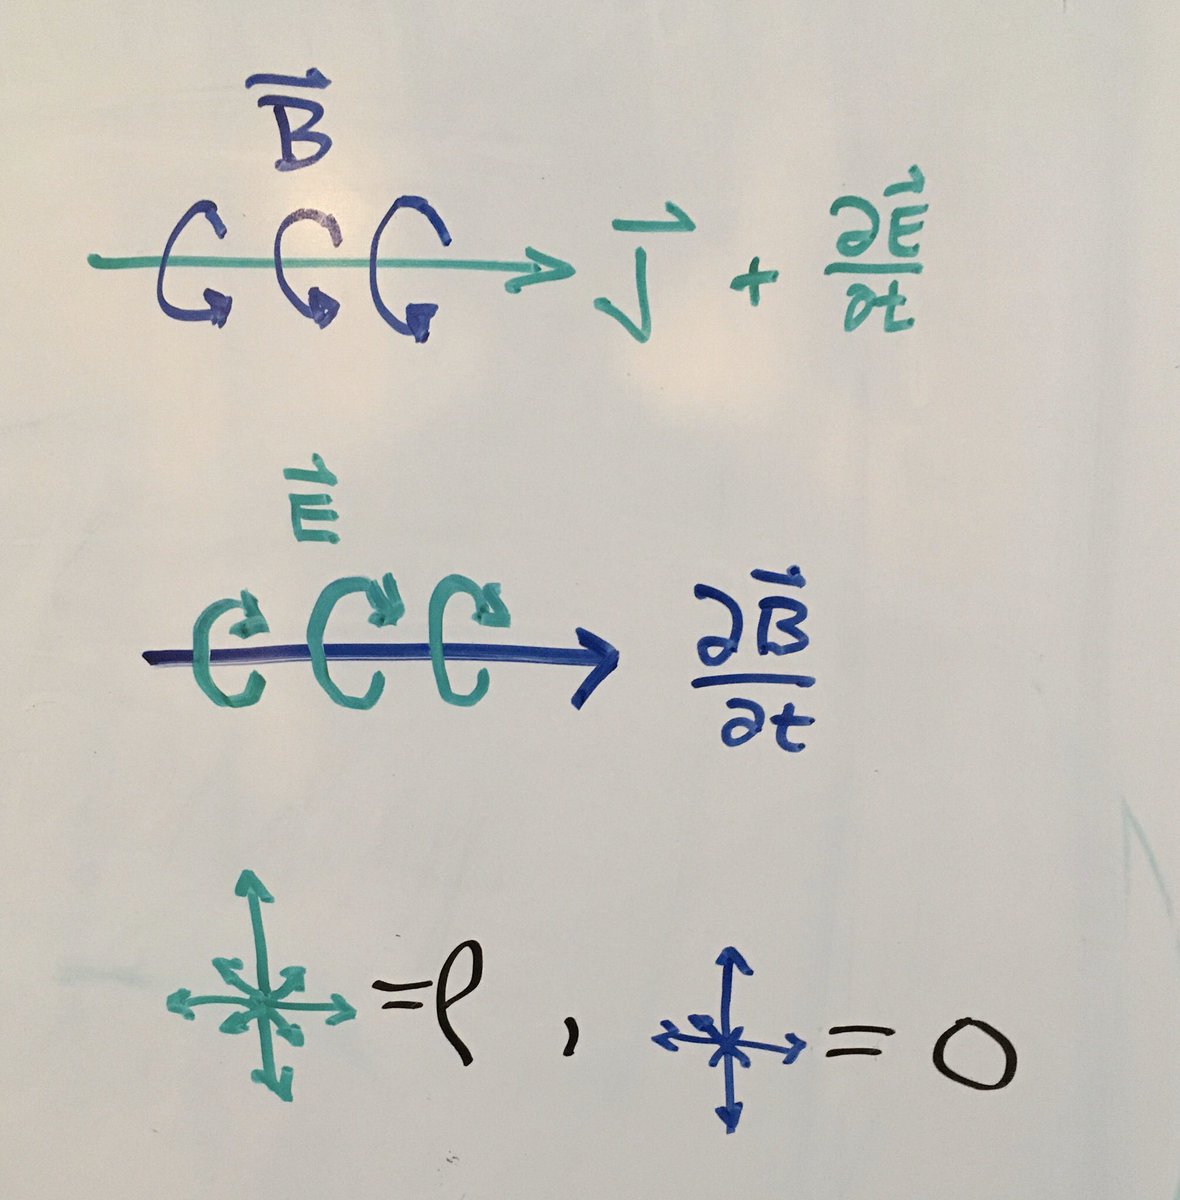 B⃗
J⃗ + ∂E⃗/∂t
E⃗
∂B⃗/∂t
=ρ , = 0